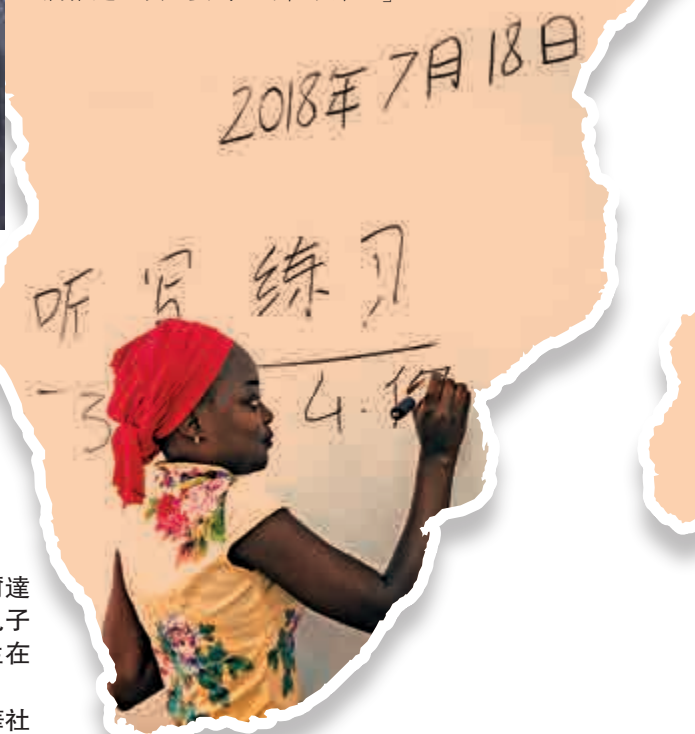 2018年7月18日
听写练习
3 4.
達
子
在
社